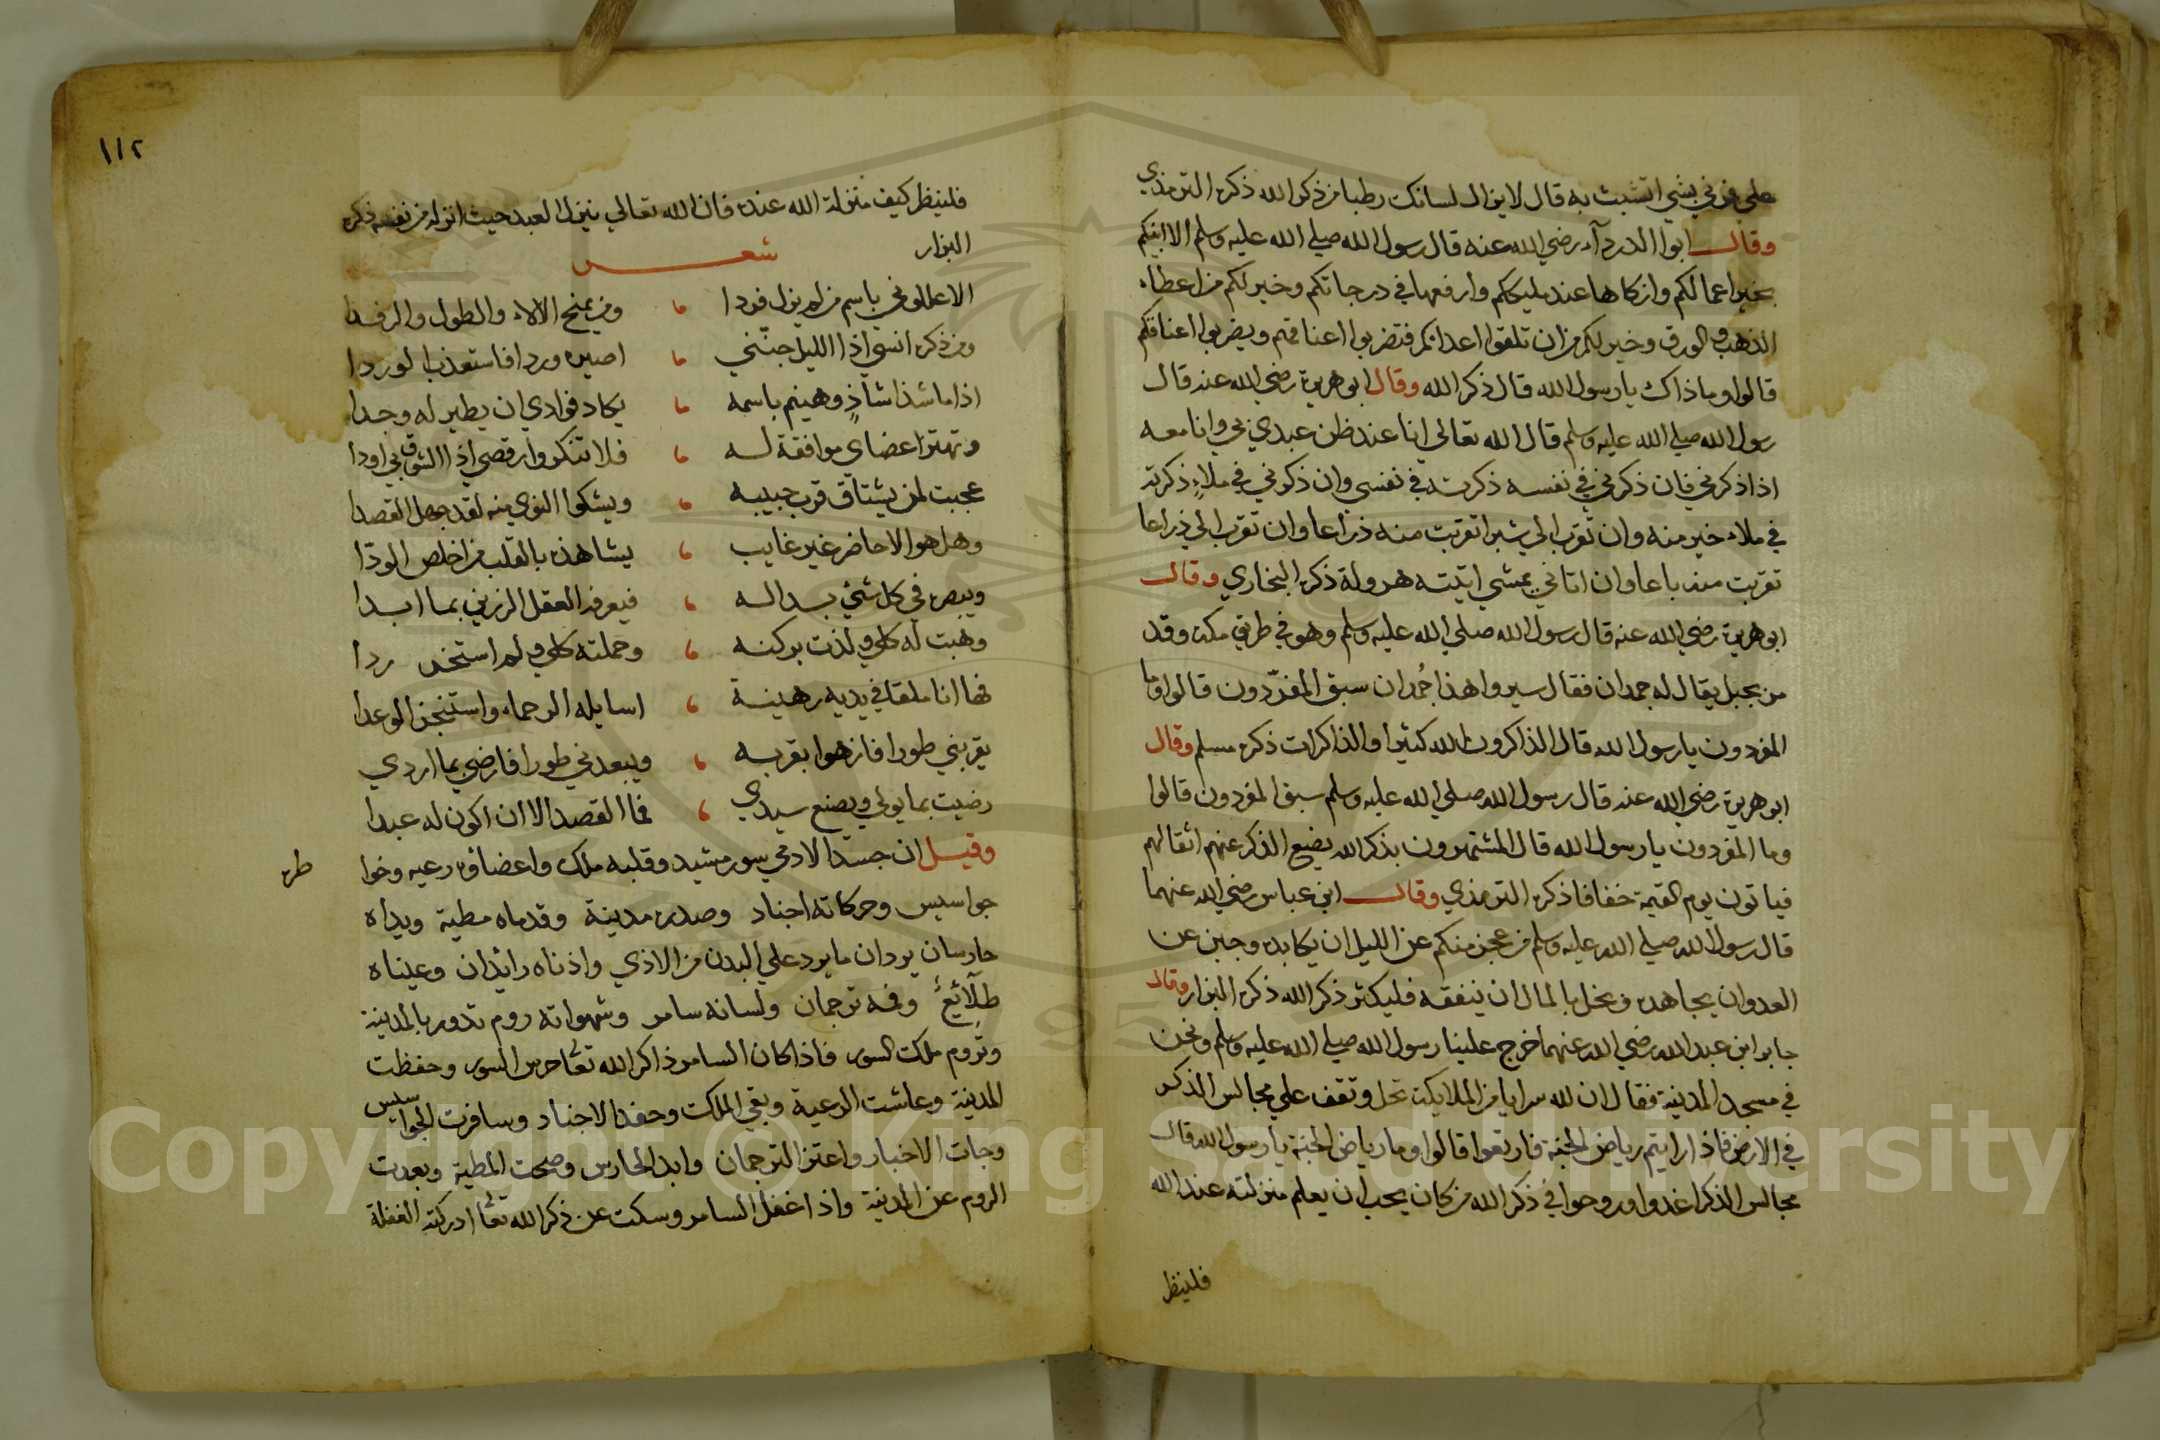 علي فمرني بشي اتشبث به قال لا يزال لسانك رطبا من ذكر الله ذكره الترمذي
وقال ابوا الدردآء رضي الله عنه قال رسول الله صلي الله عليه وسلم الا انبئكم
بخير اعمالكم وازكاها عند مليككم وارفعها في درجاتكم وخير لكم من اعطاء
الذهب والورق وخير لكم من ان تلقوا اعدائكم فتضربوا اعناقهم ويضربوا اعناقكم
قالوا وما ذاك يا رسول الله قال ذكر الله وقال ابو هريرة رضي الله عنه قال
رسول الله صلي الله عليه وسلم قال الله تعالي انا عند ظن عبدي بي وانا معه
اذا ذكرني فان ذكرني في نفسه ذكرته في نفسي وان ذكرني في ملاءٍ ذكرته
في ملاء خير منه وان تقرب الي شبرا تقربت منه ذراعا وان تقرب الي ذراعا
تقربت منه باعا وان اتاني يمشي اتيته هرولة ذكره البخاري وقال
ابو هريرة رضي الله عنه قال رسول الله صلي الله عليه وسلم وهو في طريق مكة وقد
مر بجبل يقال له جمدان فقال سيروا هذا جُمدان سبق المفرّدون قالوا وما
المفردون يا رسول الله قال الذاكرون الله كثيرا والذاكرات ذكره مسلم وقال
ابو هريرة رضي الله عنه قال رسول الله صلي الله عليه وسلم سبق المفردون قالوا
وما المفردون يا رسول الله قال المشتهرون بذكر الله يضع الذكر عنهم اثقالهم
فياتون يوم القيمة خفافا ذكره الترمذي وقال ابن عباس رضي الله عنهما
قال رسول الله صلي الله عليه وسلم من عجز منكم عن الليل ان يكابده وجبن عن
العدو ان يجاهده وبخل بالمال ان ينفقه فليكثر ذكر الله ذكره البزار وقال
جابر ابن عبد الله رضي الله عنهما خرج علينا رسول الله صلي الله عليه وسلم ونحن
في مسجد المدينة فقال ان لله سرايا من الملايكة تحل وتقف علي مجالس الذكر
في الارض فاذا رايتم رياض الجنة فارتعوا قالوا وما رياض الجنة يا رسول الله قال
مجالس الذكر اغدوا وروحوا في ذكر الله من كان يحب ان يعلم منزلته عند الله
فلينظر
١١٢
فلينظر كيف منزلة الله عنده فان الله تعالي ينزل العبد حيث انزله من نفسه ذكره
البزار
شعر
الا عللوني باسم من لم يزل فردا ومن يمنح الالاء والطول والرفدا
ومن ذكره انسي اذا الليل جنّني اصيره وردا فاستعذب الوردا
اذا ما شذا شاذٍ وهينم باسمه يكاد فوادي ان يطير له وجدا
وتهتز اعضاى موافقة له فلا تنكروا رقصي اذا الشوق بي اودا
عجبت لمن يشتاق قرب حبيبه ويشكوا النوي منه لقد جهل القصدا
وهل هو الا حاضر غير غايب يشاهده بالقلب من اخلص الودّا
ويبصره في كل شئ بدا له فيعرفه العقل الرزين بما ابدا
وهبت له كلي ولذت بركنه وحملته كلي ولم استخر ردا
فها انا ملقا في يديه رهينة اسايله الرحماء واستنجز الوعدا
يقربني طورا فازهوا بقربه ويبعدني طورا فارضي بما اردي
رضيت بما يولي ويصنع سيدي فما القصد الا ان اكون له عبدا
وقيل ان جسد الادمي سور مشيد وقلبه ملك واعضاؤه رعيه وخوا
طره
جواسيس وحركاته اجناد وصدره مدينة وقدماه مطية ويداه
حارسان يردان ما يرد علي البدن من الاذي واذناه رايدان وعيناه
طلآئع وفمه ترجمان ولسانه سامر وشهواته روم تدور بالمدينة
وتروم ملكت السور فاذا كان السامر ذاكر الله تعا حرس السور وحفظت
المدينة وعاشت الرعية وبقي الملكت وحفد الاجناد وسافرت الجواسيس
وجات الاخبار واعتز الترجمان وابد الحارس وصحت المطية وبعدت
الروم عن المدينة واذا غفل السامر وسكت عن ذكر الله تعا ادركته الغفلة
Copyright © King Saud University